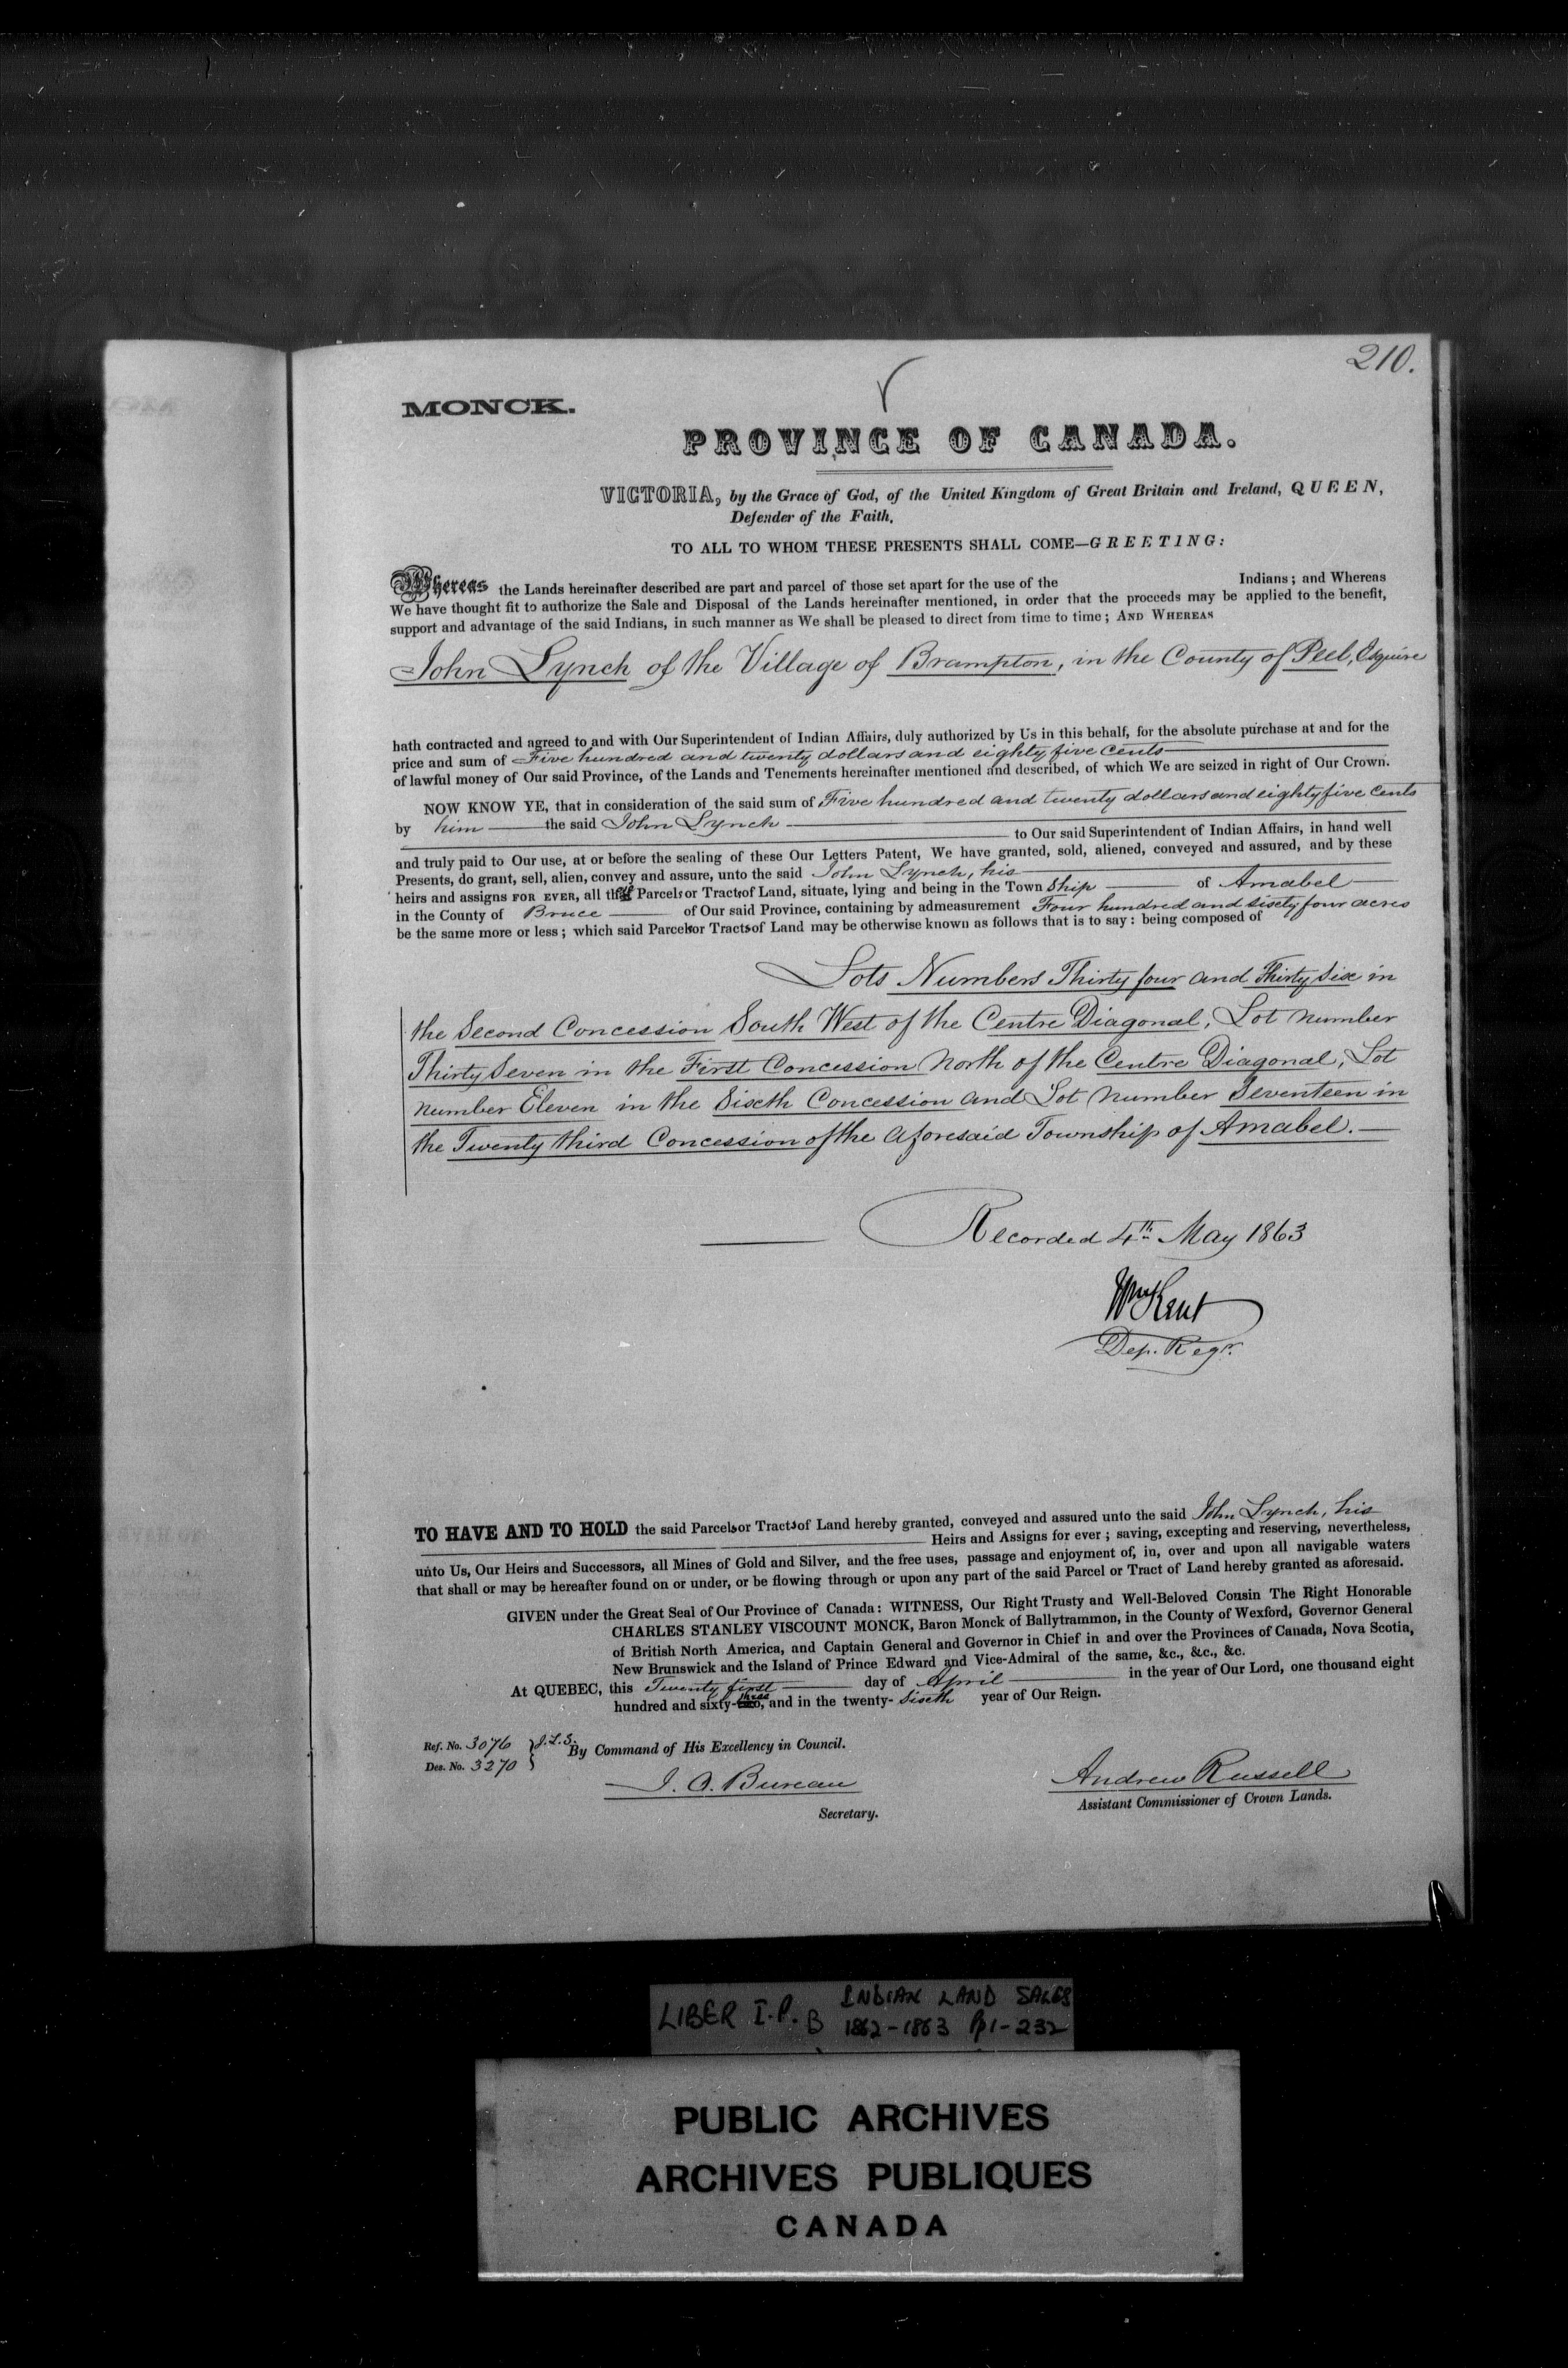 210.
MONCK.
PROVINCE OF CANADA.
VICTORIA, by the Grace of God, of the United Kingdom of Great Britain and Ireland, QUEEN,
Defender of the Faith,
TO ALL TO WHOM THESE PRESENTS SHALL COME—GREETING:
Whereas the Lands hereinafter described are part and parcel of those set apart for the use of the Indians; and Whereas
We have thought fit to authorize the Sale and Disposal of the Lands hereinafter mentioned, in order that the proceeds may be applied to the benefit,
support and advantage of the said Indians, in such manner as We shall be pleased to direct from time to time; AND WHEREAS
John Lynch of the Village of Brampton, in the County of Peel, Esquire
hath contracted and agreed to and with Our Superintendent of Indian Affairs, duly authorized by Us in this behalf, for the absolute purchase at and for the
price and sum of Five hundred and twenty dollars and eighty five cents
of lawful money of Our said Province, of the Lands and Tenements hereinafter mentioned and described, of which We are seized in right of Our Crown.
NOW KNOW YE, that in consideration of the said sum of Five hundred and twenty dollars and eighty five cents
by him — the said John Lynch — to Our said Superintendent of Indian Affairs, in hand well
and truly paid to Our use, at or before the sealing of these Our Letters Patent, We have granted, sold, aliened, conveyed and assured, and by these
Presents, do grant, sell, alien, convey and assure, unto the said John Lynch, his
heirs and assigns FOR EVER, all those Parcels or Tracts of Land, situate, lying and being in the Town Ship — of Amabel —
in the County of Bruce — of Our said Province, containing by admeasurement Four hundred and sixty four acres
be the same more or less; which said Parcels or Tracts of Land may be otherwise known as follows that is to say: being composed of
Lots Numbers Thirty four and Thirty Six in
the Second Concession South West of the Centre Diagonal, Lot number
Thirty Seven in the First Concession North of the Centre Diagonal, Lot
number Eleven in the Sixth Concession and Lot number Seventeen in
the Twenty third Concession of the aforesaid Township of Amabel.—
Recorded 4th May 1863
Wm Kent
Dep. Regr.
TO HAVE AND TO HOLD the said Parcels or Tracts of Land hereby granted, conveyed and assured unto the said John Lynch, his
Heirs and Assigns for ever; saving, excepting and reserving, nevertheless,
unto Us, Our Heirs and Successors, all Mines of Gold and Silver, and the free uses, passage and enjoyment of, in, over and upon all navigable waters
that shall or may be hereafter found on or under, or be flowing through or upon any part of the said Parcel or Tract of Land hereby granted as aforesaid.
GIVEN under the Great Seal of Our Province of Canada: WITNESS, Our Right Trusty and Well-Beloved Cousin The Right Honorable
CHARLES STANLEY VISCOUNT MONCK, Baron Monck of Ballytrammon, in the County of Wexford, Governor General
of British North America, and Captain General and Governor in Chief in and over the Provinces of Canada, Nova Scotia,
New Brunswick and the Island of Prince Edward and Vice-Admiral of the same, &c., &c., &c.
At QUEBEC, this Twenty first — day of April — in the year of Our Lord, one thousand eight
hundred and sixty-three, and in the twenty-sixth year of Our Reign.
Ref. No. 3076 } J.L.S. By Command of His Excellency in Council.
Des. No. 3270
J. O. Bureau
Secretary.
Andrew Russell
Assistant Commissioner of Crown Lands.
LIBER I.P. B INDIAN LAND SALES
1862-1863 Pp1-232
PUBLIC ARCHIVES
ARCHIVES PUBLIQUES
CANADA